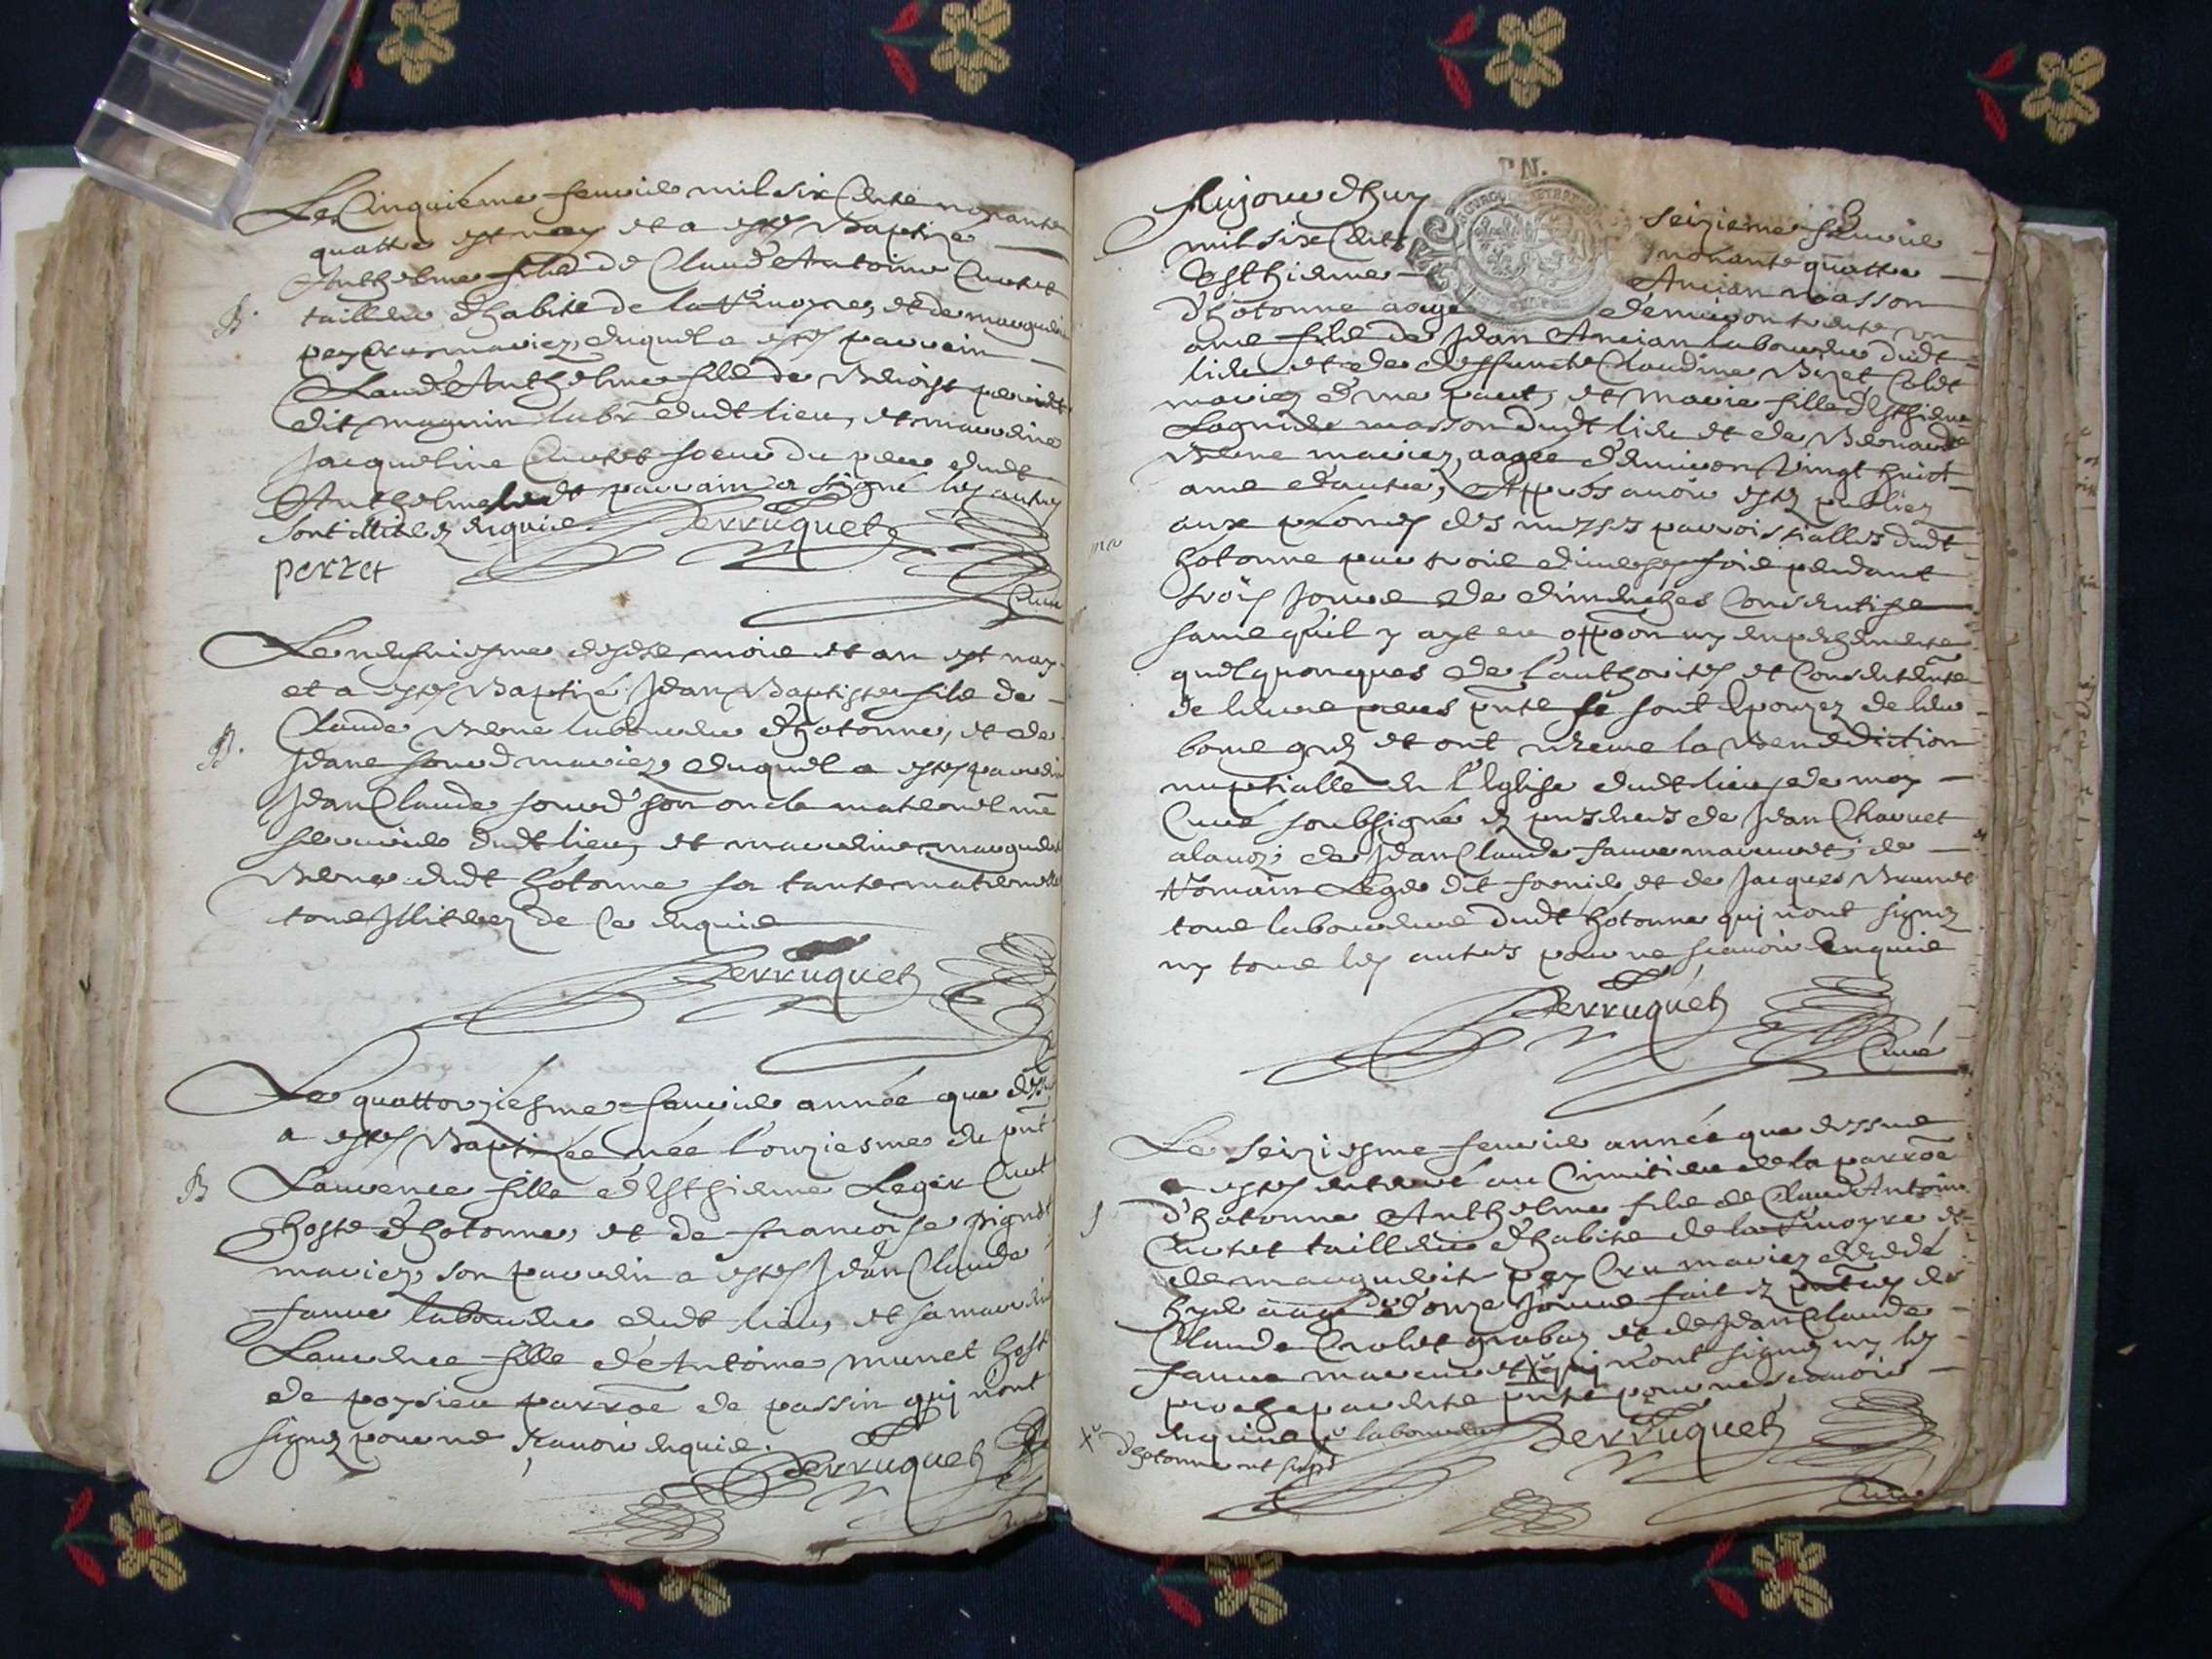 Le Cinquiéme feuvier mil six Cents nonante
quattre est nay et a esté Baptizé
Anthelme fils de Claud'Antoine Cuvtet
tailleur d'habits de
B.
mariez, duquel a esté parrain
Claud'Anthelme fils de Benoist perret
dit magnin labr dudt lieu, et marreine
Jacqueline Cuvtet soeur du pere dudt
Anthelme ledt parrain a signé les autres
sont illitérez enquis
Perruquet
perret
Curé
Le neufuiesme desdts mois et an est nay
et a esté Baptizé Jean Baptiste fils de
Claude Berne laboureur d'hotonne, et de
B.
Jeane mariez, duquel a esté parrein
Jean Claude son oncle maternel
dudt lieu, et marreine
Berne dudt hotonne sa tante
tous Illitérez de Ce enquis
Perruquet
Le quattorziesme feuvier année que dessus
a esté Baptizée née l'onziesme du pnt
B
Laurence fille d'Esthienne Leger Cuvt
hoste d'hotonne, et de francoise pignet
mariez, son parrein a esté Jean Claude
faure laboureur dudt lieu, et sa marreine
Laurence fille d'Antoine munet hoste
de poysieu parroe de passin qui n'ont
signez pour ne scavoir enquis.
Perruquet
Curé
P.N.
Aujourd'huy seizieme feuvier
mil six Cents nonante quattre
Esthienne Ancian masson
d'hotonne aagé d'environ trente un
ans fils de Jean Ancian laboureur dudt
lieu et de deffuncte Claudine Bezet Coler
mariez d'une part, et Marie fille d'Esthienne
masson dudt lieu et de Bernarde
Berne mariez, aagée d'environ vingt huict
ans d'autre, Appres avoir estez publiez
aux prosnes des messes parroissialles dudt
hotonne par trois diverses fois pendant
ma
trois jours de dimenches Consecutifs
sans qu'il y ayt eu oppoon ny enpechements
quelquonques de l'authorité et Consentemts
de leurs peres pnts se sont Epouzez de leur
bons grez et ont receu la Benediction
nuptialle en l'Eglise dudt lieu, de moy
Curé soubsigné ez presences de Jean Chavuet
de Jean Claude faure de
Romain Leger dit et de Jacques Brunet
tous laboureurs dudt hotonne qui n'ont signez
ny tous les autres pour ne scavoir Enquis
Perruquet
Curé
Le Seiziesme feuvier année que dessus
a esté enterré au Cimitiere de la parroe
S
d'hotonne Anthelme fils de Claud'Antoine
Cuvtet tailleur d'habits de et
de marguerite mariez decedé
hyer aagé d'onze jours fait ez pntces de
Claude et de Jean Claude
faure qui n'ont signez ny les
proche parents pnts pour ne scavoir
enquis laboureurs
d'hotonne
Perruquet
Curé